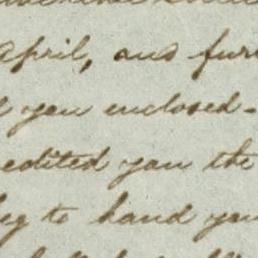 April, and fur
you enclosed-
edited you the
beg to hand you